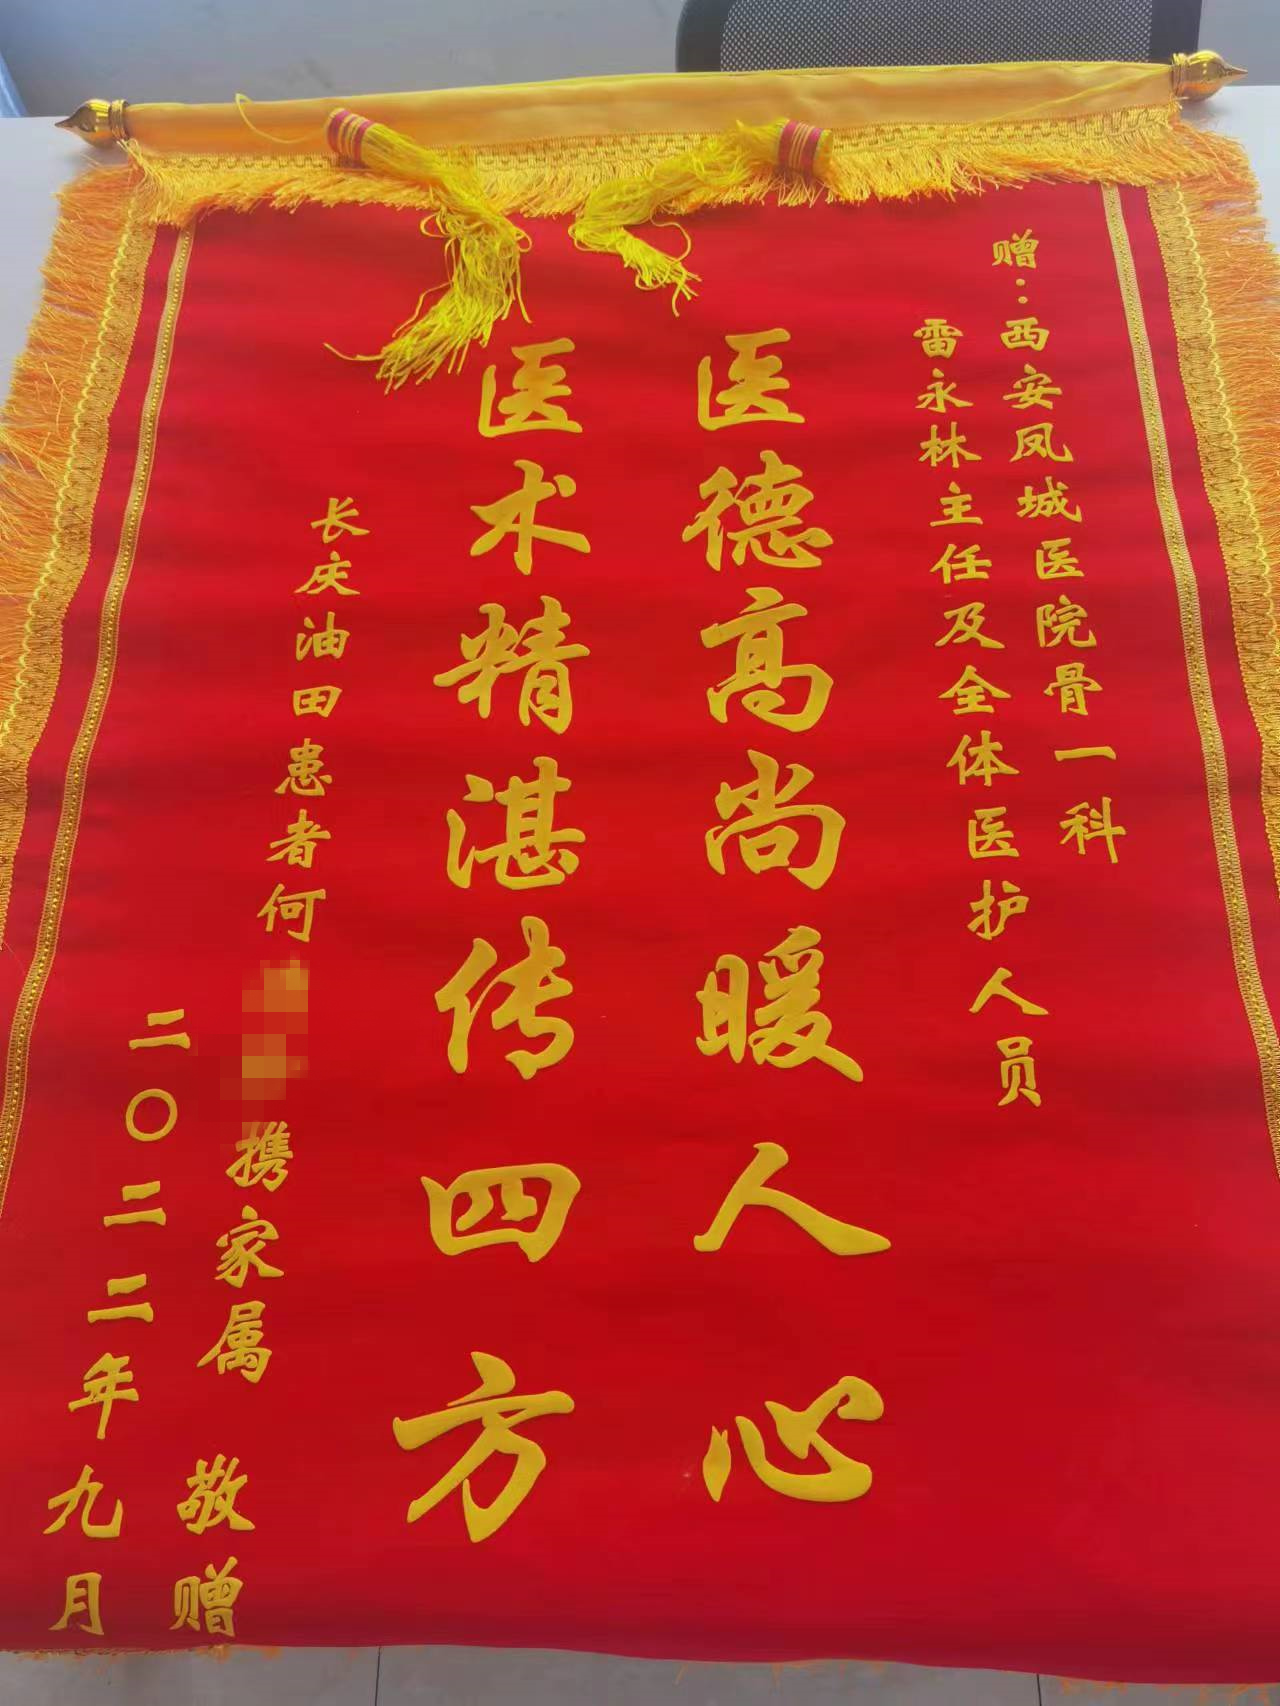 赠：西安凤城医院骨一科
雷永林主任及全体医护人员
医德高尚暖人心
医术精湛传四方
长庆油田患者何
携家属 敬赠
二〇二二年九月